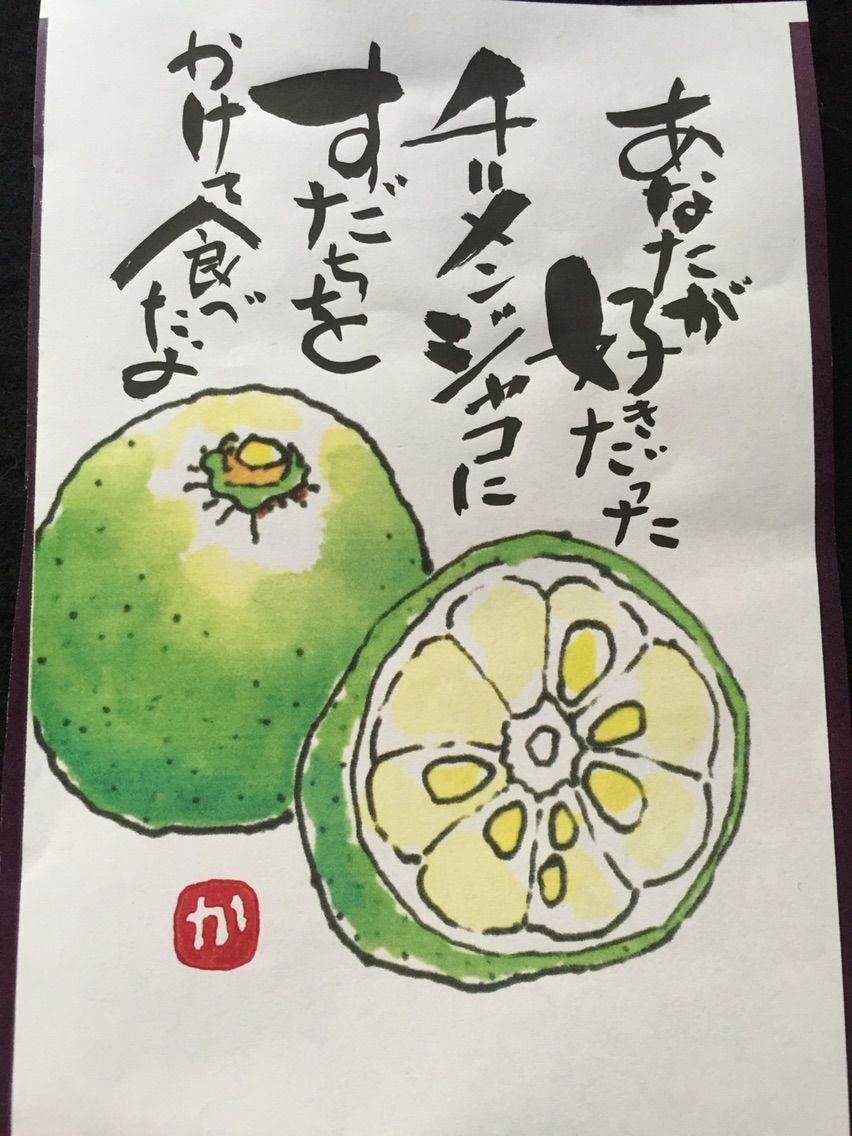 あなたが
好きだった
チリメンジャコに
すだちを
かけて食べたよ
か